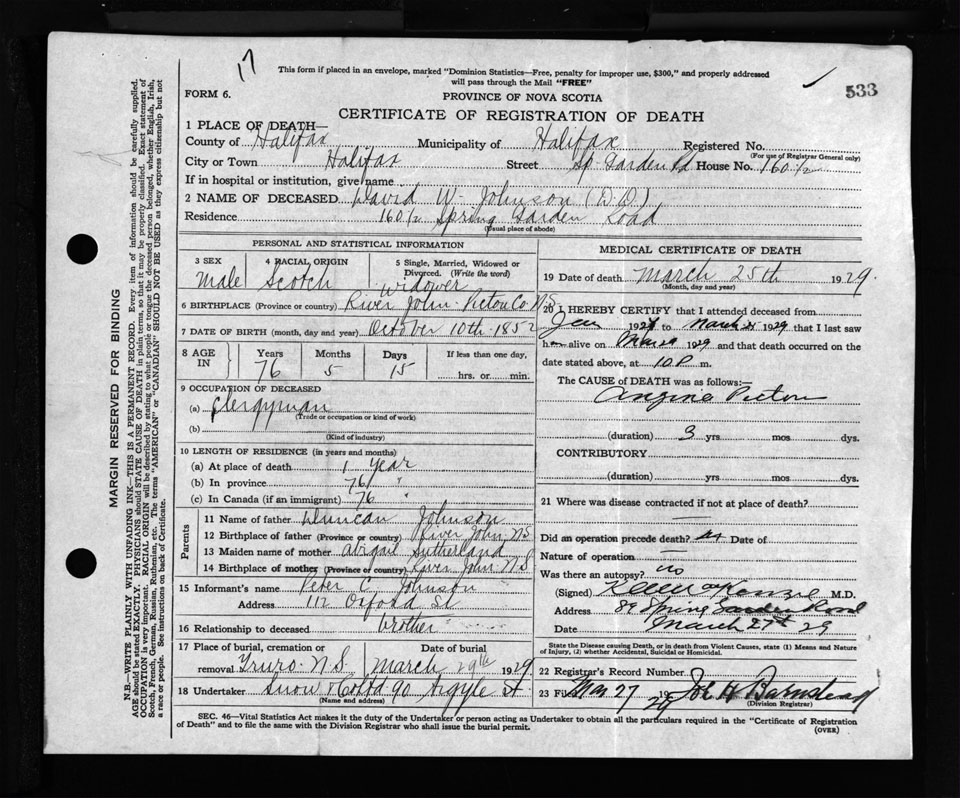 17
This form if placed in an envelope, marked "Dominion Statistics—Free, penalty for improper use, $300," and properly addressed
will pass through the Mail "FREE"
533
FORM 6.
PROVINCE OF NOVA SCOTIA
CERTIFICATE OF REGISTRATION OF DEATH
1 PLACE OF DEATH—
County of Halifax Municipality of Halifax Registered No.
(For use of Registrar General only)
City or Town Halifax Street Sp Garden Rd House No. 160 1/2
If in hospital or institution, give name
2 NAME OF DECEASED David W. Johnson (D.D)
Residence 160 1/2 Spring Garden Road
(Usual place of abode)
PERSONAL AND STATISTICAL INFORMATION
3 SEX 4 RACIAL ORIGIN 5 Single, Married, Widowed or
Divorced. (Write the word)
Male Scotch Widower
6 BIRTHPLACE (Province or country) River John Pictou Co N.S
7 DATE OF BIRTH (month, day and year) October 10th 1852
8 AGE IN Years Months Days If less than one day,
76 5 15 hrs. or min.
9 OCCUPATION OF DECEASED
(a) Clergyman
(Trade or occupation or kind of work)
(b)
(Kind of industry)
10 LENGTH OF RESIDENCE (in years and months)
(a) At place of death 1 Year
(b) In province 76 "
(c) In Canada (if an immigrant) 76 "
Parents
11 Name of father Duncan Johnson
12 Birthplace of father (Province or country) River John, N.S
13 Maiden name of mother Abigail Sutherland
14 Birthplace of mother (Province or country) River John N.S
15 Informant's name Peter C. Johnson
Address 112 Oxford St
16 Relationship to deceased brother
17 Place of burial, cremation or Date of burial
removal Truro. N.S. March 29th 1929
18 Undertaker Snow & Co Ltd 90 Argyle St.
(Name and address)
MEDICAL CERTIFICATE OF DEATH
19 Date of death March 25th 1929.
(Month, day and year)
20 I HEREBY CERTIFY that I attended deceased from
Jan 192 to March 25 1929 that I last saw
h alive on Mar 1929 and that death occurred on the
date stated above, at 10 P. m.
The CAUSE OF DEATH was as follows:
Angina Pectoris
(duration) 3 yrs mos dys.
CONTRIBUTORY
(duration) yrs mos dys.
21 Where was disease contracted if not at place of death?
—
Did an operation precede death? Date of
Nature of operation —
Was there an autopsy? no
(Signed) M.D.
Address 89 Spring Garden Road
Date March 27th 29
State the Disease causing Death, or in death from Violent Causes, state (1) Means and Nature
of Injury, (2) whether Accidental, Suicidal or Homicidal.
22 Registrar's Record Number
23 Filed Mar 27 1929 H Barnstead
(Division Registrar)
SEC. 46—Vital Statistics Act makes it the duty of the Undertaker or person acting as Undertaker to obtain all the particulars required in the "Certificate of Registration
of Death" and to file the same with the Division Registrar who shall issue the burial permit.
(OVER)
MARGIN RESERVED FOR BINDING
N.B.—WRITE PLAINLY WITH UNFADING INK—THIS IS A PERMANENT RECORD. Every item of information should be carefully supplied.
AGE should be stated EXACTLY. PHYSICIANS should STATE CAUSE OF DEATH in plain terms, so that it may be properly classified. Exact statement of
OCCUPATION is very important. RACIAL ORIGIN will be described by stating to what people or tongue the deceased person belonged, whether English, Irish,
Scotch, French, German, Russian, Ruthenian, etc. The terms "AMERICAN" or "CANADIAN" SHOULD NOT BE USED as they express citizenship but not
a race or people. See instructions on back of Certificate.